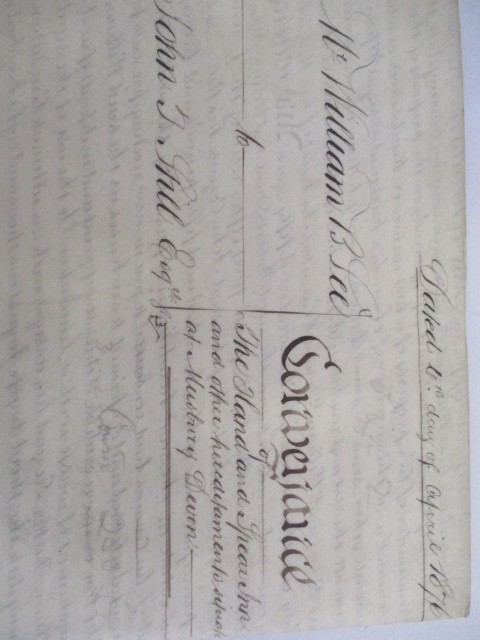 Dated 6th day of April 1876
Mr. William B. Lee
to
John T. Still Esqre
Conveyance
of
The Hand and Spear Inn
and other heredidaments situate
at Musbury Devon.